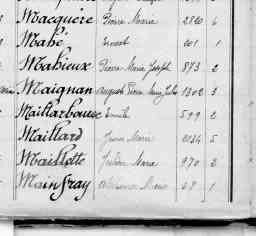 Macquère Pierre Marie 2820 6
Mahé Ernest 201 1
Mahieux Pierre Marie Joseph 873 2
Maignan Auguste Pierre Marie Jules 1302 3
Maillarbouex Emile 599 2
Maillard Jean Marie 2134 5
Maillotte 970 2
Mainfray 68 1